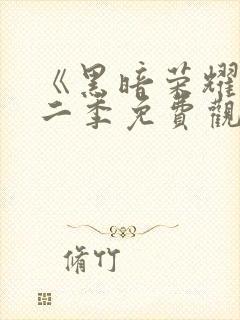 《黑暗荣耀
二季免費觀
脩竹